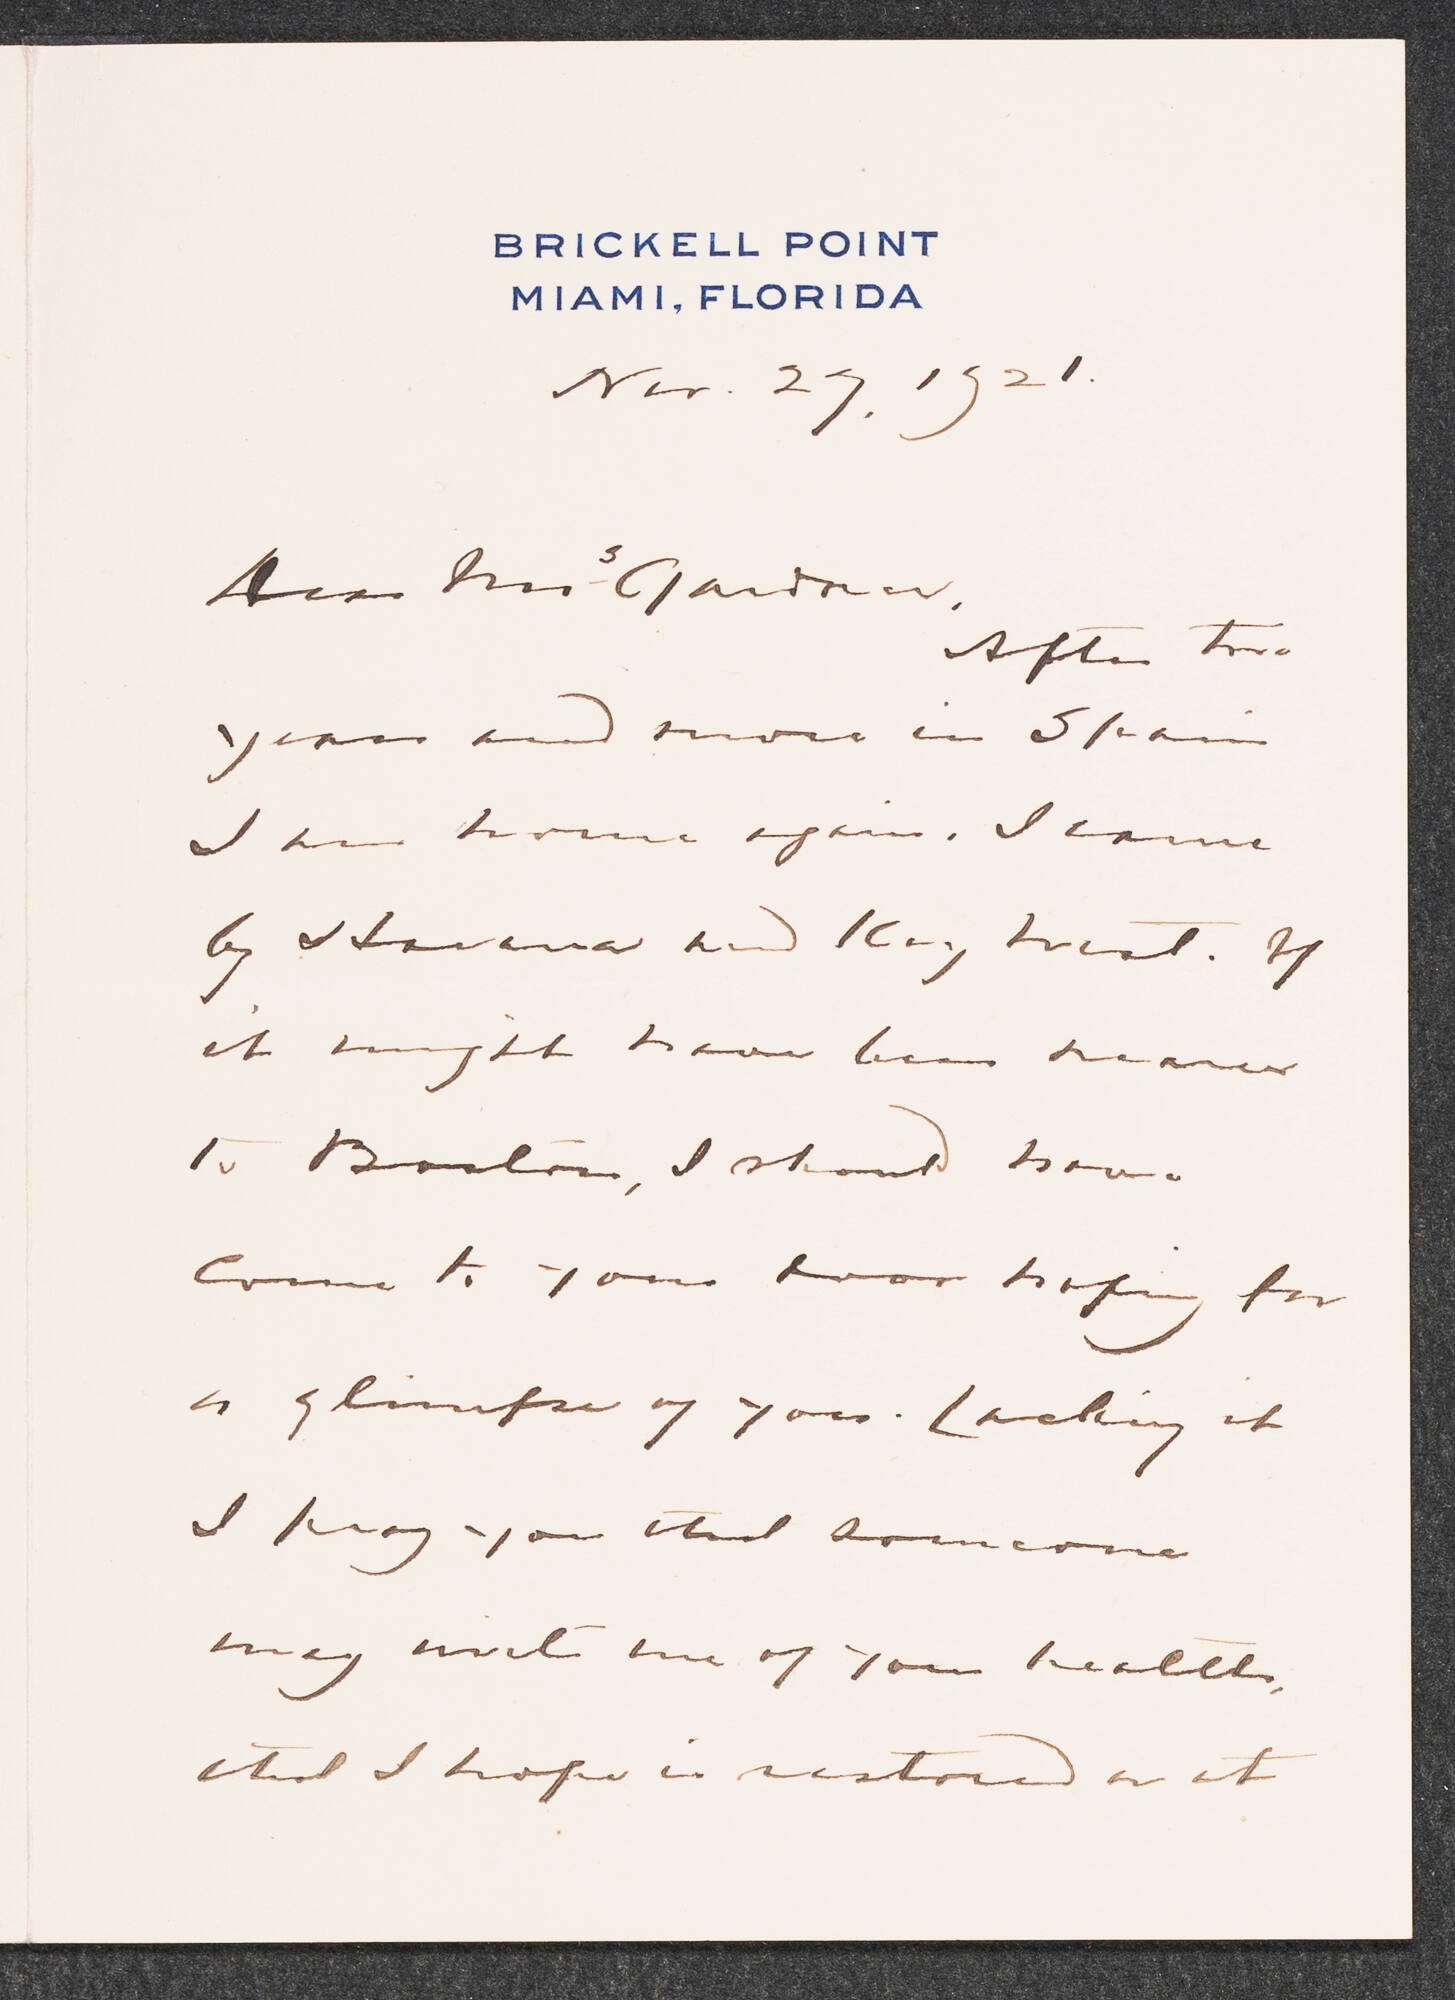 BRICKELL POINT
MIAMI, FLORIDA
Nov. 29, 1921.
Dear Mrs Gardner,
After two
years and more in Spain
I am home again. I came
by Havana and Key West. If
it might have been nearer
to Boston, I should have
come to your door hoping for
a glimpse of you. Lacking it
I pray you that someone
may write me of your health,
that I hope is restored or at